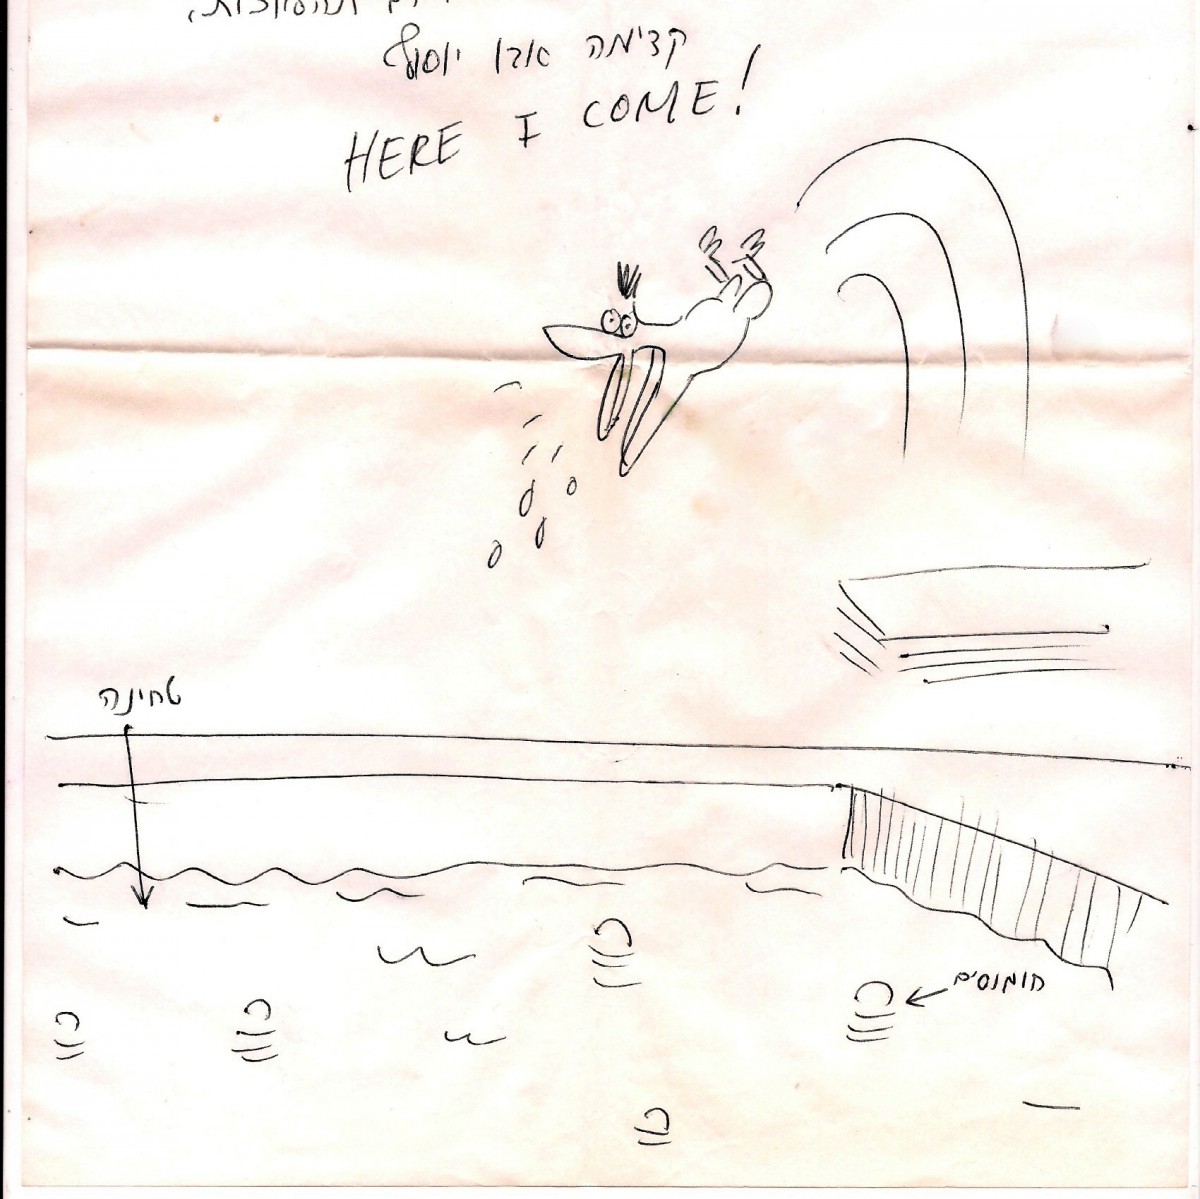 קדימה אבו יוסף
HERE I COME!
טחינה
חומוסים